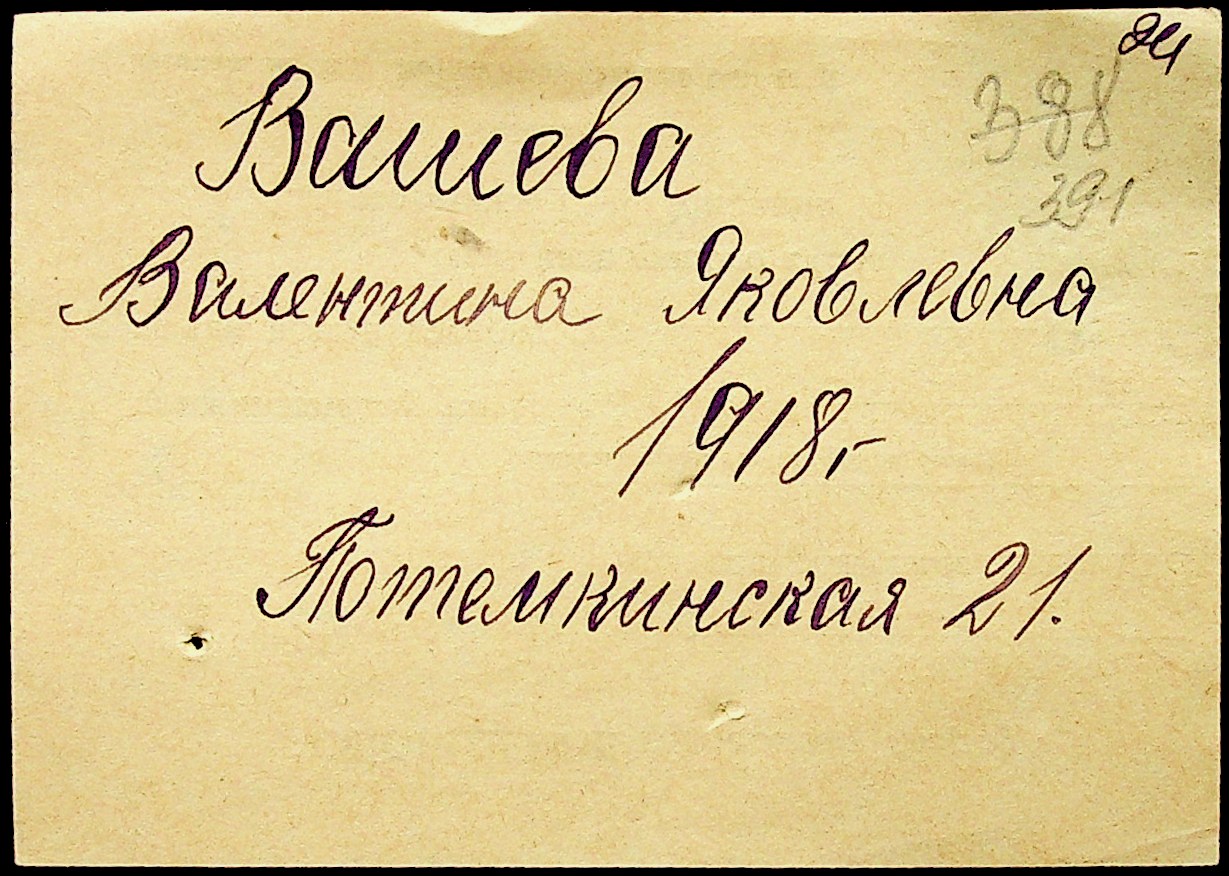 ач
388
391
Вашева
Валентина Яковлевна
1918,-
Потемкинская 21.